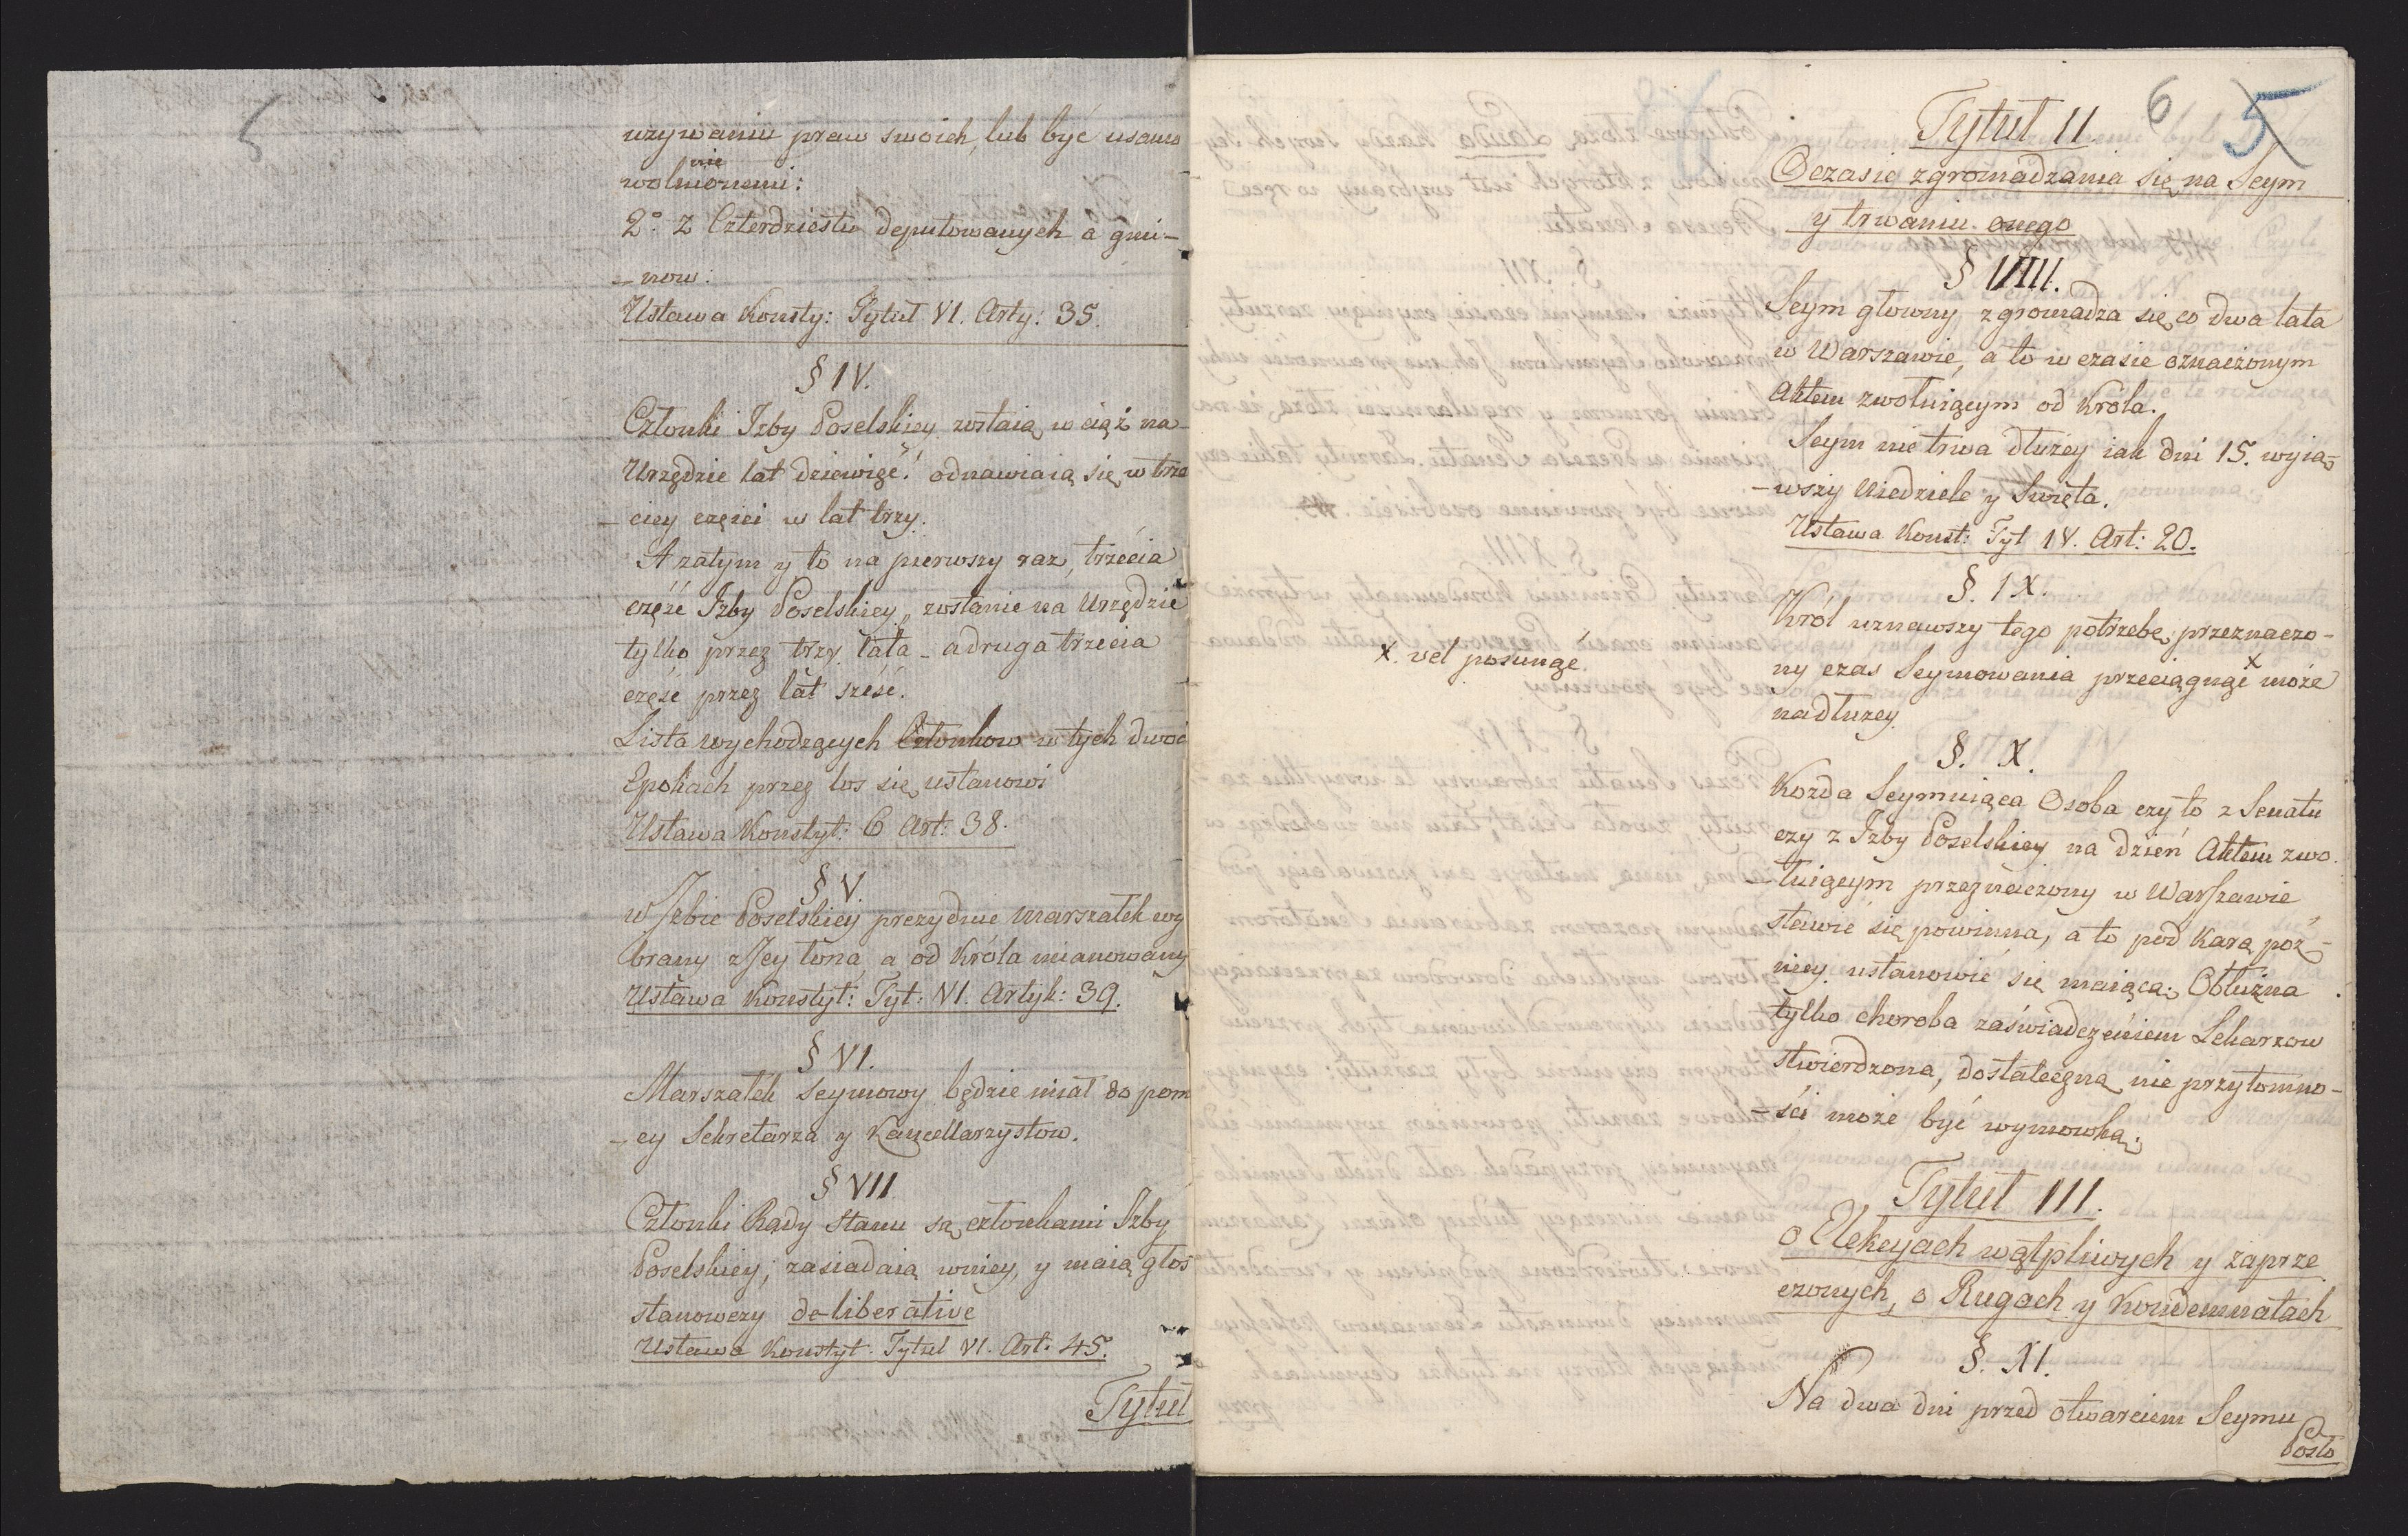 używaniu praw swoich, lub być usamo
wolnionemi:
nie
2° z Czterdziestu deputowanych a gmi-
- now:
Ustawa Konsty: Tytuł VI. Arty: 35.
§ IV.
Członki Izby Poselskiey zostaią w ciąż na
Urzędzie lat dziewięć: odnawiaią się w trze
- ciey części w lat trzy.
A zatym y to na pierwszy raz, trzecia
część Izby Poselskiey, zostanie na Urzędzie
tylko przez trzy lata - a druga trzecia
część przez lat sześć.
Lista wychodzących Członkow w tych dwóc
Epokach przez los się ustanowi
Ustawa Konstyt: 6 Art: 38.
§ V
w Izbie Poselskiey prezyduie Marszałek wy
brany z Jey łona, a od Króla mianowany
Ustawa Konstyt: Tyt: VI. Artyk: 39.
§ VI.
Marszałek Seymowy będzie miał do pom
- cy Sekretarza y Kancellarzystow.
§ VII
Członki Rady Stanu są członkami Izby
Poselskiey; zasiadaią w niey, y maią głos
stanowczy de-liberative
Ustawa Konstyt. Tytuł VI. Art: 45.
Tytuł
6 5
Tytuł II.
O czasie zgromadzania się na Seym
y trwaniu onego
§ VIII.
Seym głowny zgromadza się co dwa lata
w Warszawie, a to w czasie oznaczonym
Aktem zwołuiącym od Króla.
Seym nie trwa dłużey iak dni 15. wyią-
- wszy Niedziele y Swięta.
Ustawa Konst: Tyt IV. Art: 20.
§. IX.
Król uznawszy tego potrzebę, przeznaczo-
ny czas Seymowania przeciągnąć x może
nadłużey.
x. vel posunąć.
§. X.
Kożda Seymuiąca Osoba czy to z Senatu
czy z Izby Poselskiey na dzień Aktem zwo
- łuiącym przeznaczony w Warszawie
stawić się powinna, a to pod karą poź-
niey ustanowić się maiącą. Obłużna
tylko choroba zaświadczeniem Lekarzow
stwierdzona, dostateczną nie przytomno-
- ści może być wymowką.
Tytuł III.
o Elekcyach wątpliwych y zaprze
czonych, o Rugach y Kondemnatach
§. XI.
Na dwa dni przed otwarciem Seymu
Posło